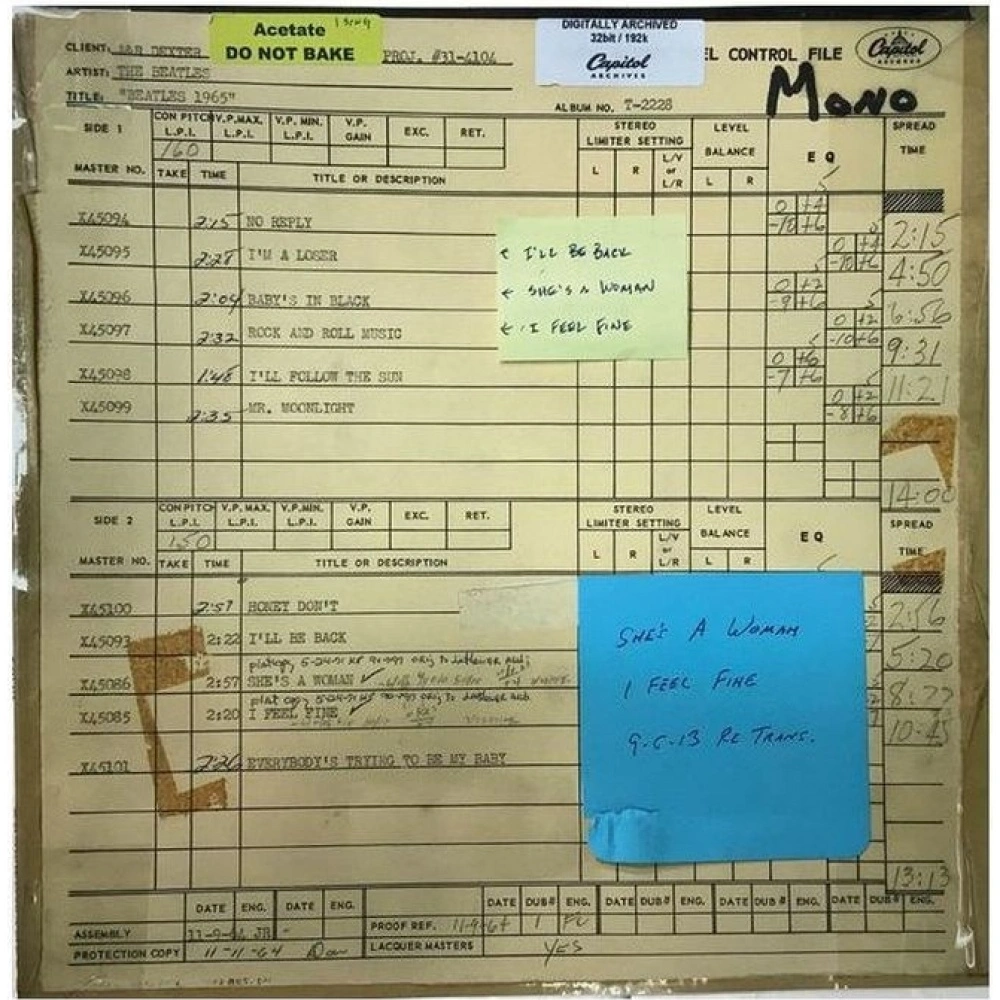 Acetate
DO NOT BAKE
DIGITALLY ARCHIVED
32bit / 192k
Capitol
ARCHIVES
CLIENT: DEXTER PROJ. #31-4104
EL CONTROL FILE
Capitol
RECORDS
ARTIST: THE BEATLES
MONO
TITLE: "BEATLES 1965"
ALBUM NO. T-2228
SIDE 1 CON PITCH L.P.I. V.P. MAX. L.P.I. V.P. MIN. L.P.I. V.P. GAIN EXC. RET. STEREO LIMITER SETTING LEVEL BALANCE EQ SPREAD TIME
160
L R L/V or L/R L R
MASTER NO. TAKE TIME TITLE OR DESCRIPTION
X45094 2:15 NO REPLY 0 +4 -10 +6 2:15
X45095 2:28 I'M A LOSER 0 +4 -10 +6 4:50
X45096 2:04 BABY'S IN BLACK 0 +2 -9 +6 6:56
X45097 2:32 ROCK AND ROLL MUSIC 0 +2 -10 +6 9:31
X45098 1:48 I'LL FOLLOW THE SUN 0 +6 -7 +6 11:21
X45099 2:35 MR. MOONLIGHT 0 +2 -8 +6
14:00
← I'LL BE BACK
← SHE'S A WOMAN
← I FEEL FINE
SIDE 2 CON PITCH L.P.I. V.P. MAX. L.P.I. V.P. MIN. L.P.I. V.P. GAIN EXC. RET. STEREO LIMITER SETTING LEVEL BALANCE EQ SPREAD TIME
150
L R L/V or L/R L R
MASTER NO. TAKE TIME TITLE OR DESCRIPTION
X45100 2:57 HONEY DON'T 2:56
X45093 2:22 I'LL BE BACK 5:20
X45086 2:57 SHE'S A WOMAN
X45085 2:20 I FEEL FINE 10:45
X45101 2:26 EVERYBODY'S TRYING TO BE MY BABY
13:13
SHE'S A WOMAN
I FEEL FINE
9-6-13 RE TRANS.
DATE ENG. DATE ENG. DATE DUB# ENG. DATE DUB# ENG. DATE DUB# ENG. DATE DUB# ENG.
ASSEMBLY 11-9-64 JB PROOF REF. 11-9-64 1
PROTECTION COPY 11-11-64 LACQUER MASTERS YES